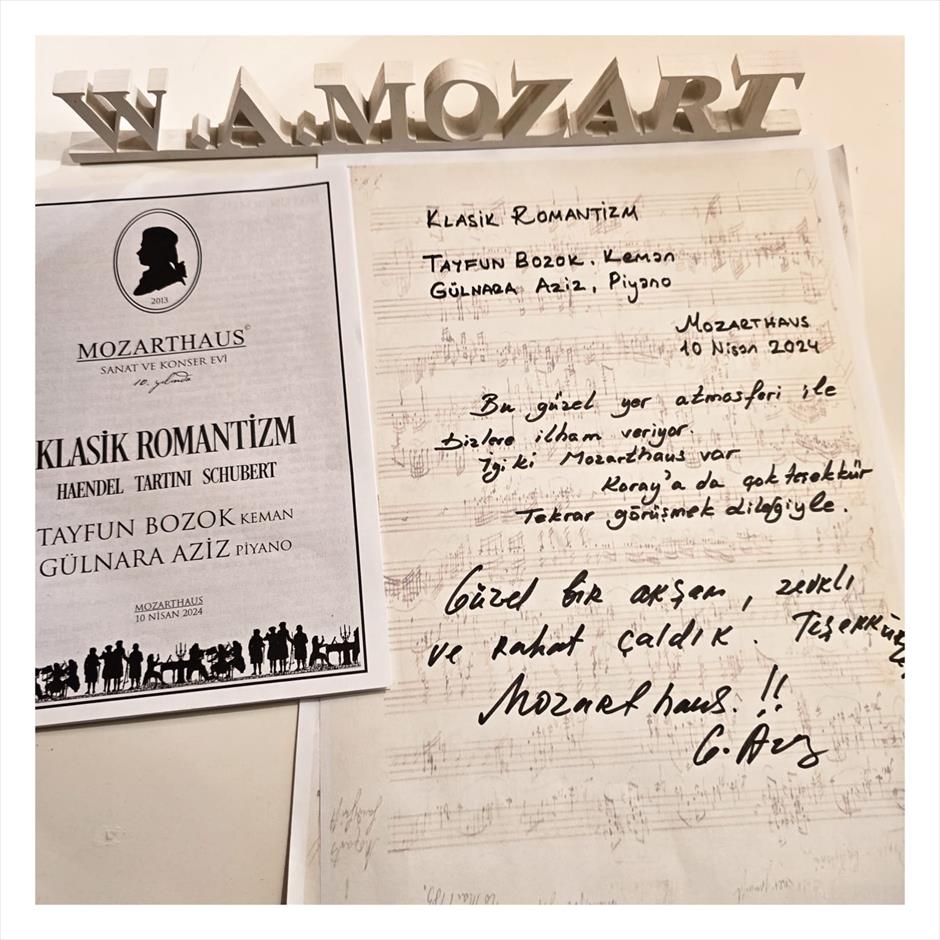 W.A.MOZART
2013
MOZARTHAUS©
SANAT VE KONSER EVİ
10. yılında
KLASİK ROMANTİZM
HAENDEL TARTINI SCHUBERT
TAYFUN BOZOK KEMAN
GÜLNARA AZİZ PİYANO
MOZARTHAUS
10 NİSAN 2024
KLASİK ROMANTİZM
TAYFUN BOZOK, Keman
GÜLNARA AZİZ, Piyano
MOZARTHAUS
10 Nisan 2024
Bu güzel yer atmosferi ile
bizlere ilham veriyor.
İyi ki Mozarthaus var
Koray'a da çok teşekkür
Tekrar görüşmek dileğiyle.
Güzel bir akşam, zevkli
ve rahat çaldık. Teşekkürler
Mozarthaus.!!
G. Aziz